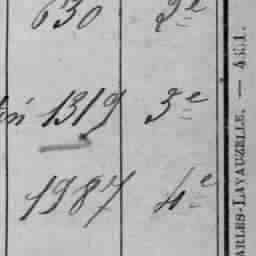 630 2e
1319 3e
1987 4e
ARLES-LAVAUZELLE. —